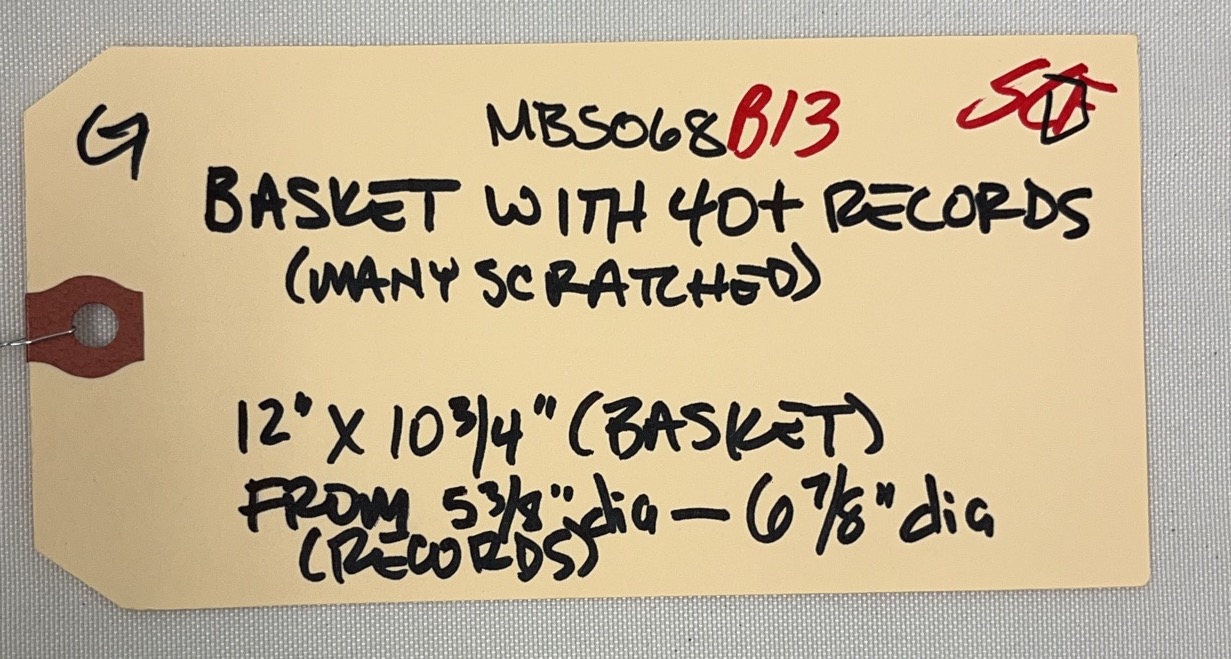 G MBS068 B13
BASKET WITH 40+ RECORDS
(MANY SCRATCHED)
12" X 10 3/4" (BASKET)
FROM 5 3/8" dia — 6 7/8" dia
(RECORDS)